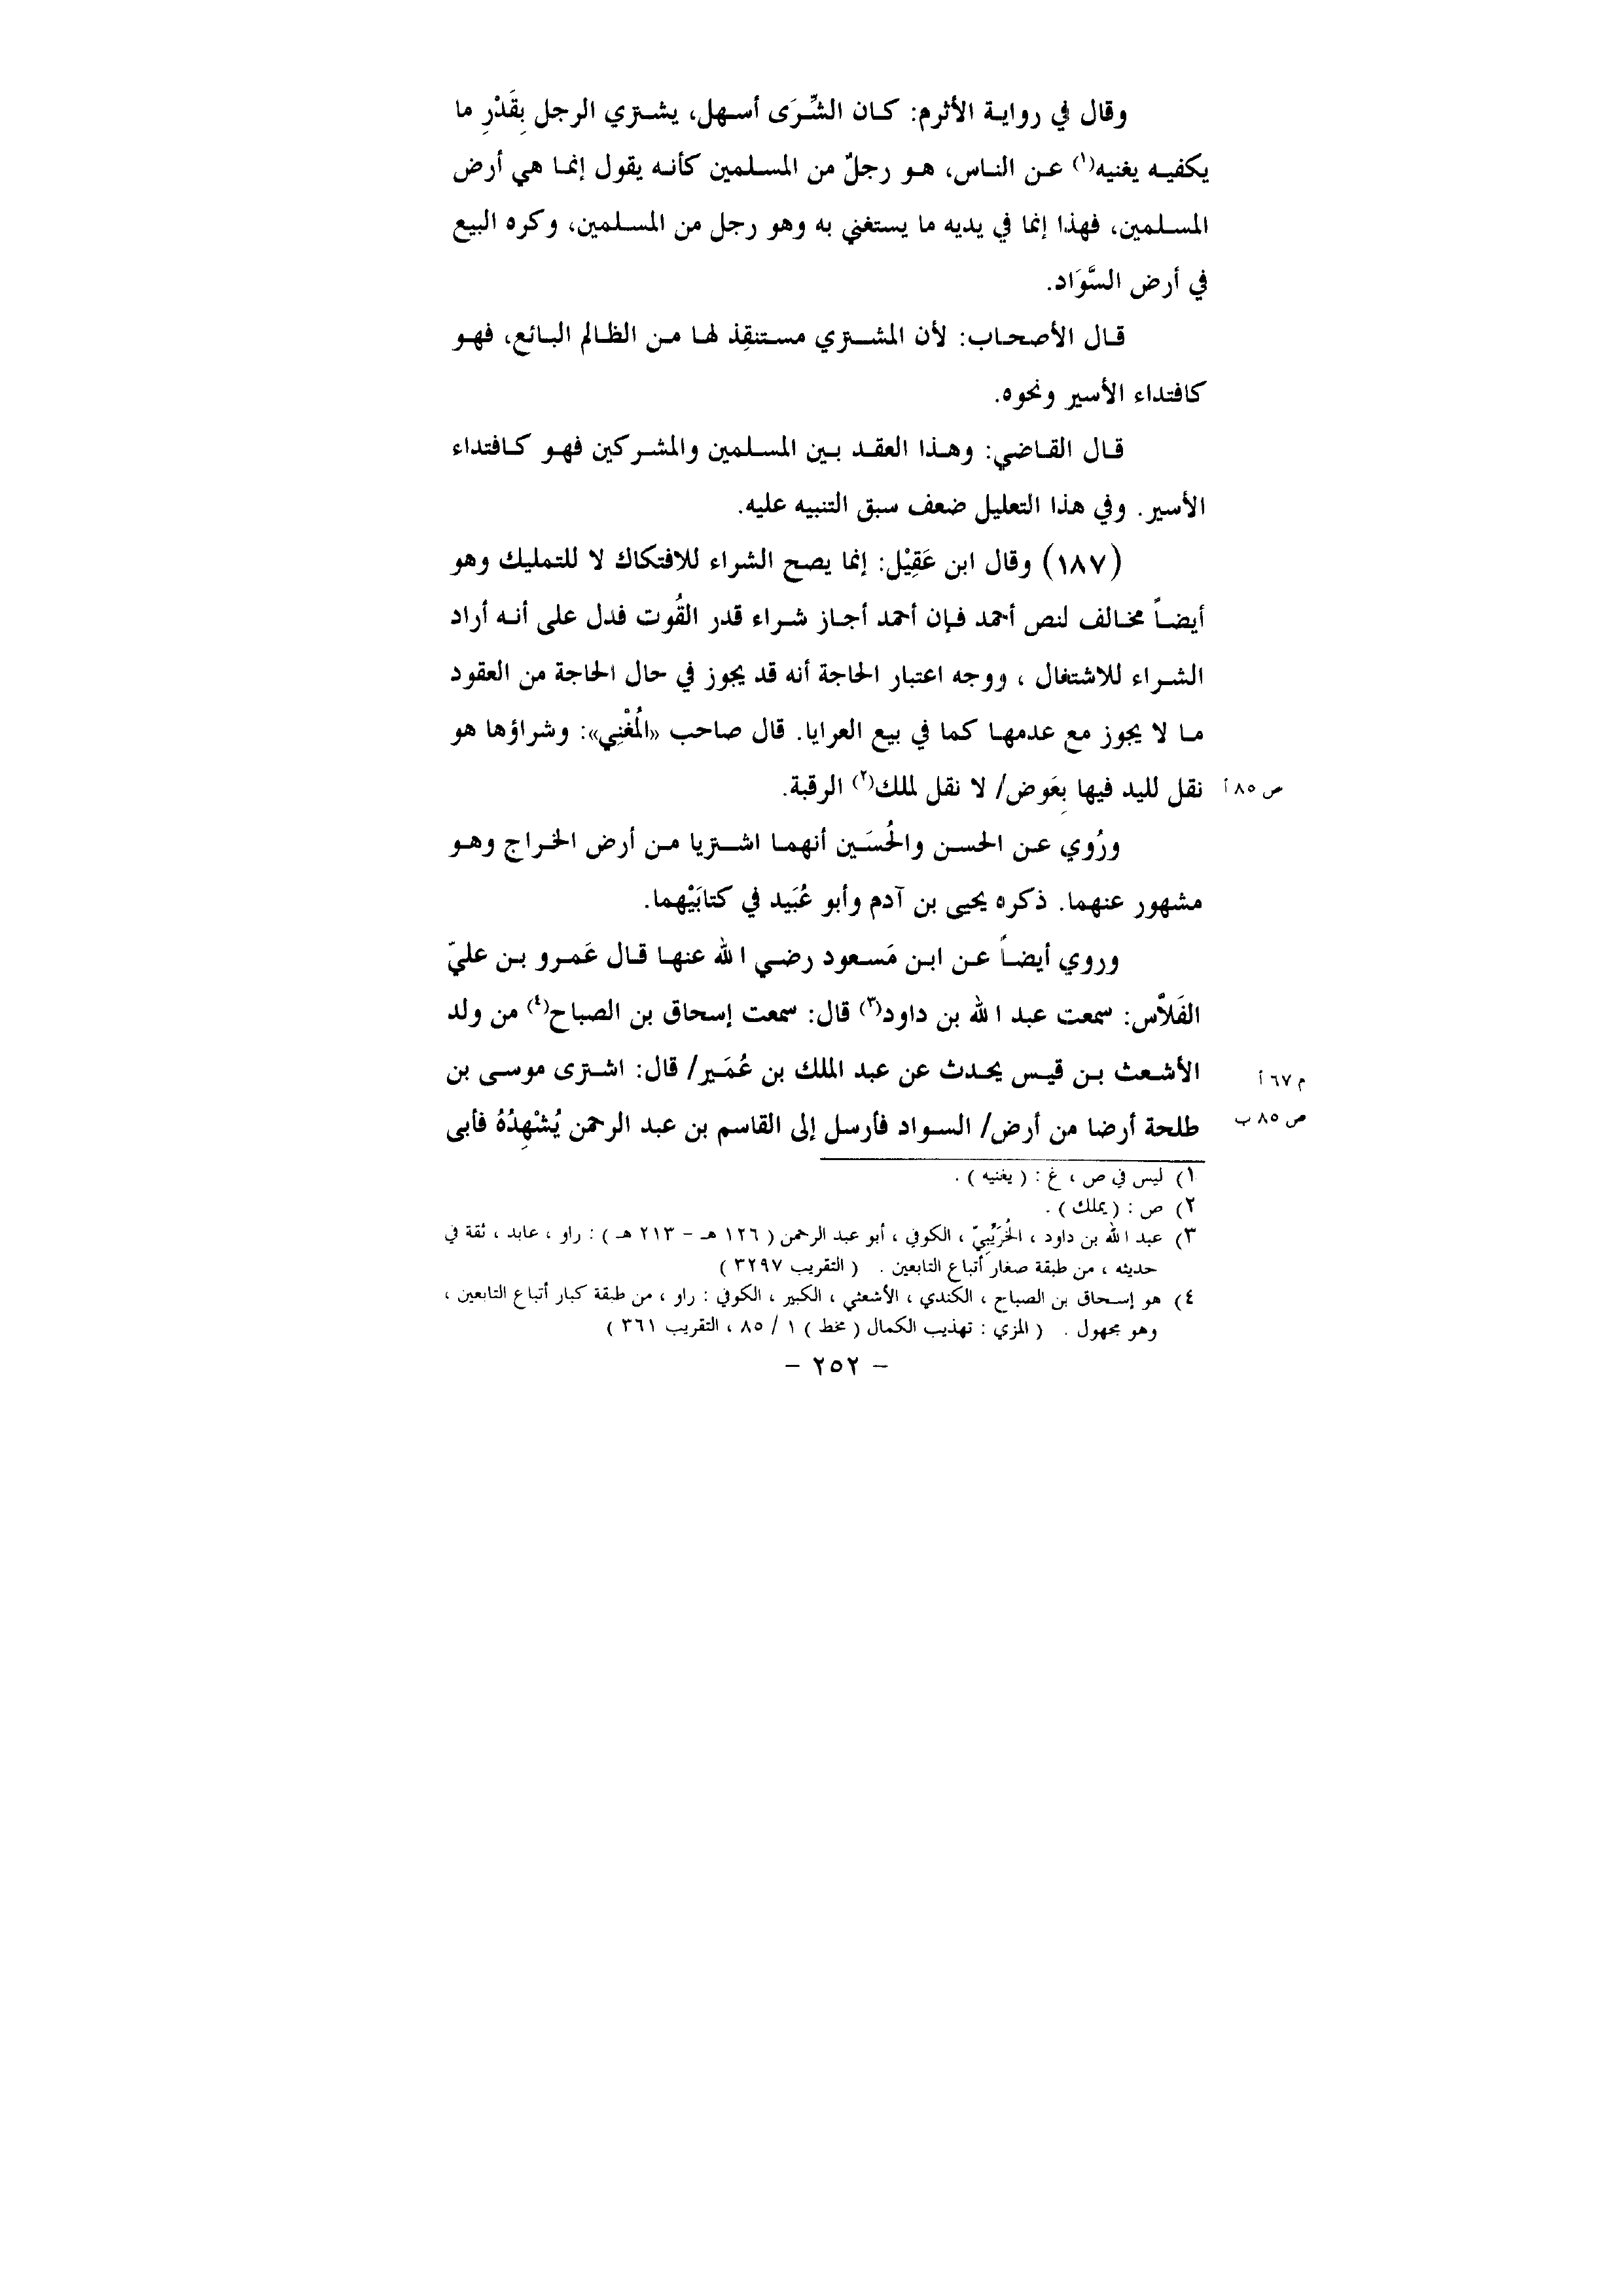 وقال في رواية الأثرم: كان الشِّرَى أسهل، يشتري الرجل بِقَدْرِ ما
يكفيه يغنيه(١) عن الناس، هو رجلٌ من المسلمين كأنه يقول إنما هي أرض
المسلمين، فهذا إنما في يديه ما يستغني به وهو رجل من المسلمين، وكره البيع
في أرض السَّوَاد.
قال الأصحاب: لأن المشتري مستنقِذ لها من الظالم البائع، فهو
كافتداء الأسير ونحوه.
قال القاضي: وهذا العقد بين المسلمين والمشركين فهو كافتداء
الأسير. وفي هذا التعليل ضعف سبق التنبيه عليه.
(١٨٧) وقال ابن عَقِيْل: إنما يصح الشراء للافتكاك لا للتمليك وهو
أيضاً مخالف لنص أحمد فإن أحمد أجاز شراء قدر القُوت فدل على أنه أراد
الشراء للاشتغال ، ووجه اعتبار الحاجة أنه قد يجوز في حال الحاجة من العقود
ما لا يجوز مع عدمها كما في بيع العرايا. قال صاحب «المُغْنِي»: وشراؤها هو
نقل لليد فيها بِعَوض/ لا نقل لملك(٢) الرقبة.
ص ٨٥ أ
ورُوي عن الحسن والحُسَين أنهما اشتريا من أرض الخراج وهو
مشهور عنهما. ذكره يحيى بن آدم وأبو عُبَيد في كتابَيْهما.
وروي أيضاً عن ابن مَسعود رضي الله عنها قال عَمرو بن عليّ
الفَلاّس: سمعت عبد الله بن داود(٣) قال: سمعت إسحاق بن الصباح(٤) من ولد
الأشعث بن قيس يحدث عن عبد الملك بن عُمَير/ قال: اشترى موسى بن
م ٦٧ أ
طلحة أرضا من أرض/ السواد فأرسل إلى القاسم بن عبد الرحمن يُشْهِدُهُ فأبى
ص ٨٥ ب
١) ليس في ص ، غ : ( يغنيه ) .
٢) ص : ( يملك ) .
٣) عبد الله بن داود ، الخُرَيْبِيّ ، الكوفي ، أبو عبد الرحمن ( ١٢٦ هـ – ٢١٣ هـ ) : راو ، عابد ، ثقة في
حديثه ، من طبقة صغار أتباع التابعين . ( التقريب ٣٢٩٧ )
٤) هو إسحاق بن الصباح ، الكندي ، الأشعثي ، الكبير ، الكوفي : راو ، من طبقة كبار أتباع التابعين ،
وهو مجهول . ( المزي : تهذيب الكمال ( مخط ) ١ / ٨٥ ، التقريب ٣٦١ )
– ٢٥٢ –